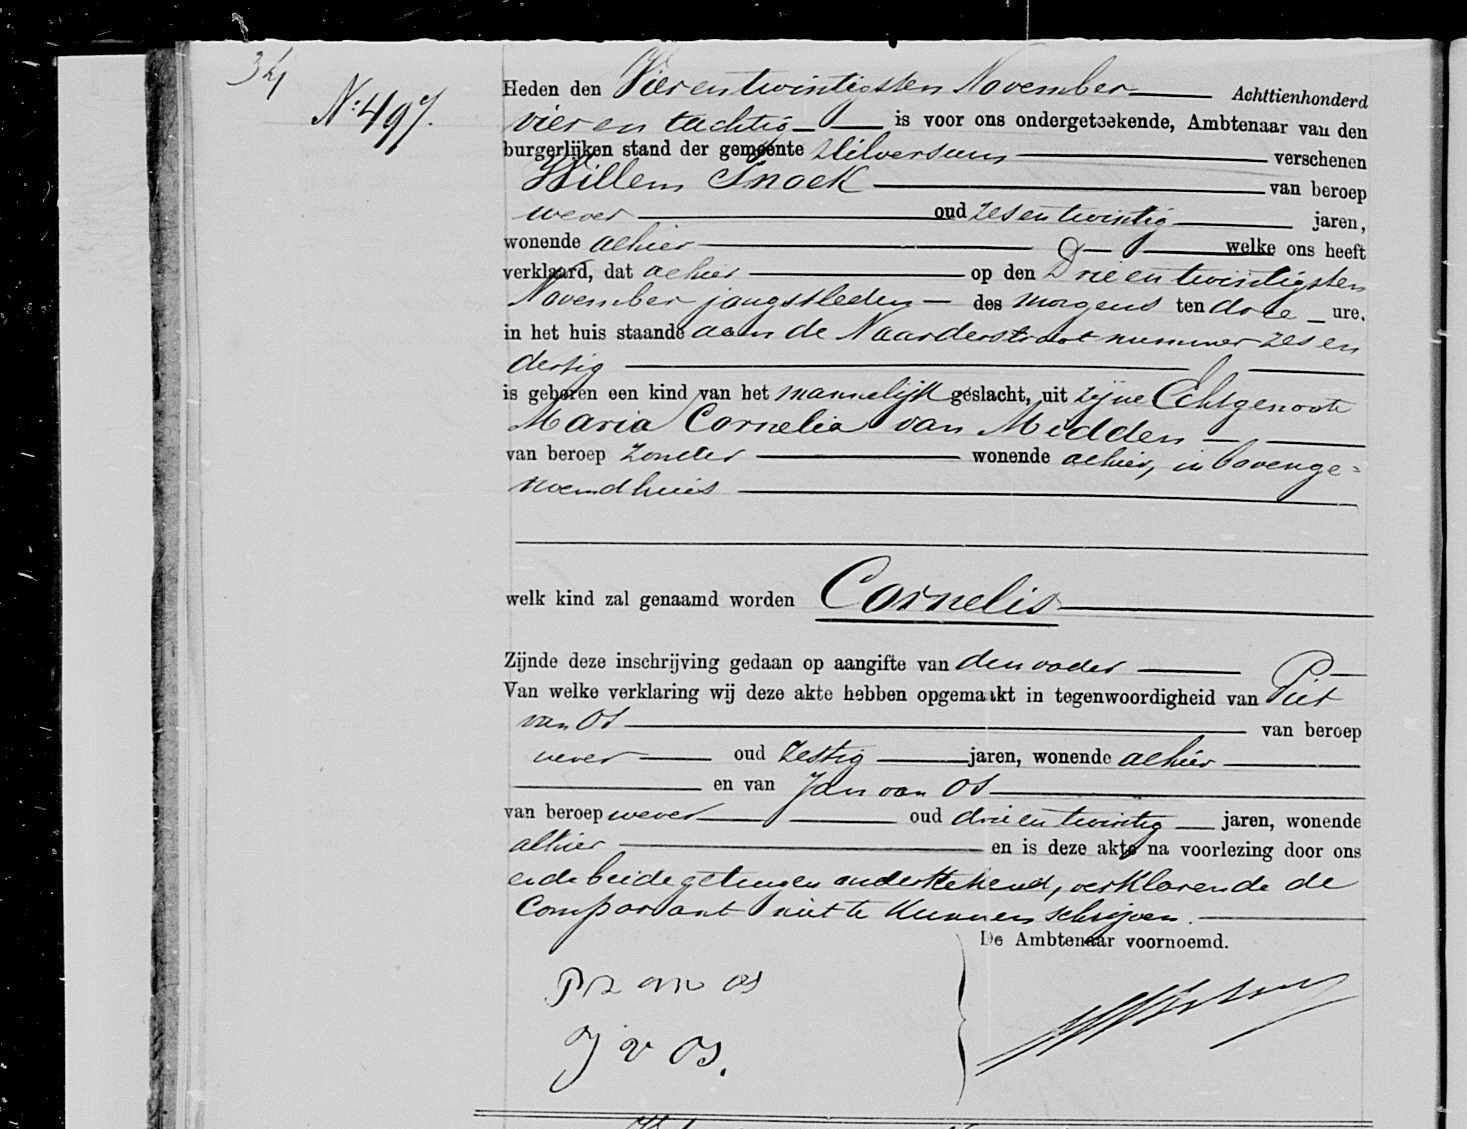 34
No. 497.
Heden den Vierentwintigsten November Achttienhonderd
vier en tachtig is voor ons ondergeteekende, Ambtenaar van den
burgerlijken stand der gemeente Hilversum verschenen
Willem Snoek van beroep
wever oud zesentwintig jaren,
wonende alhier welke ons heeft
verklaard, dat alhier op den Drieentwintigsten
November jongstleden des morgens ten drie ure.
in het huis staande aan de Naarderstraat nummer zes en
dertig
is geboren een kind van het mannelijk geslacht, uit zijne Echtgenoote
Maria Cornelia van Midden
van beroep zonder wonende alhier, in bovenge=
noemd huis
welk kind zal genaamd worden Cornelis
Zijnde deze inschrijving gedaan op aangifte van den vader
Van welke verklaring wij deze akte hebben opgemaakt in tegenwoordigheid van Piet
van Os van beroep
wever oud zestig jaren, wonende alhier
en van Jan van Os
van beroep wever oud drieentwintig jaren, wonende
alhier en is deze akte na voorlezing door ons
en de beide getuigen onderteekend, verklarende de
Comparant niet te kunnen schrijven.
De Ambtenaar voornoemd.
van os
J v Os.